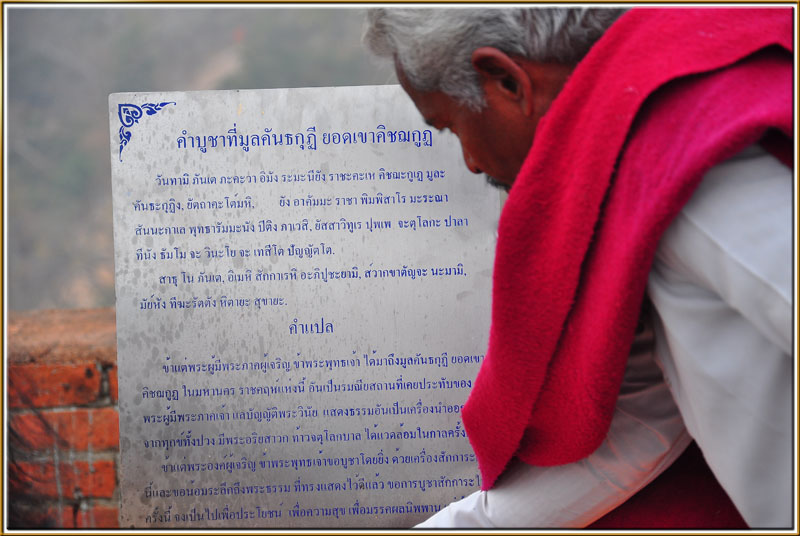 คำบูชาที่มูลคันธกุฎี ยอดเขาคิชฌกูฏ
วันทามิ ภันเต ภะคะวา อิมัง ระมะนียัง ราชะคะเห คิชฌะกูเฏ มูละ
คันธะกุฎิง, ยัตถาคะโตัมหิ, ยัง อาคัมมะ ราชา พิมพิสาโร มะระณา
สันนะกาเล พุทธารัมมะนัง ปีติง ภาเวสิ, ยัสสาวิทูเร ปุพเพ จะตุโลกะ ปาลา
ทีนัง ธัมโม จะ วินะโย จะ เทสิโต ปัญญัตโต.
สาธุ โน ภันเต, อิเมหิ สักกาเรหิ อะภิปูชะยามิ, สวากขาตัญจะ นะมามิ,
มัยหัง ทีฆะรัตตัง หิตายะ สุขายะ.
คำแปล
ข้าแต่พระผู้มีพระภาคผู้เจริญ ข้าพระพุทธเจ้า ได้มาถึงมูลคันธกุฎี ยอดเขา
คิชฌกูฏ ในมหานคร ราชคฤห์แห่งนี้ อันเป็นรมณียสถานที่เคยประทับของ
พระผู้มีพระภาคเจ้า แลบัญญัติพระวินัย แสดงธรรมอันเป็นเครื่องนำออก
จากทุกข์ทั้งปวง มีพระอริยสาวก ท้าวจตุโลกบาล ได้แวดล้อมในกาลครั้ง
ข้าแต่พระองค์ผู้เจริญ ข้าพระพุทธเจ้าขอบูชาโดยยิ่ง ด้วยเครื่องสักการะ
นี้และขอน้อมระลึกถึงพระธรรม ที่ทรงแสดงไว้ดีแล้ว ขอการบูชาสักการะ
ครั้งนี้ จงเป็นไปเพื่อประโยชน์ เพื่อความสุข เพื่อมรรคผลนิพพาน